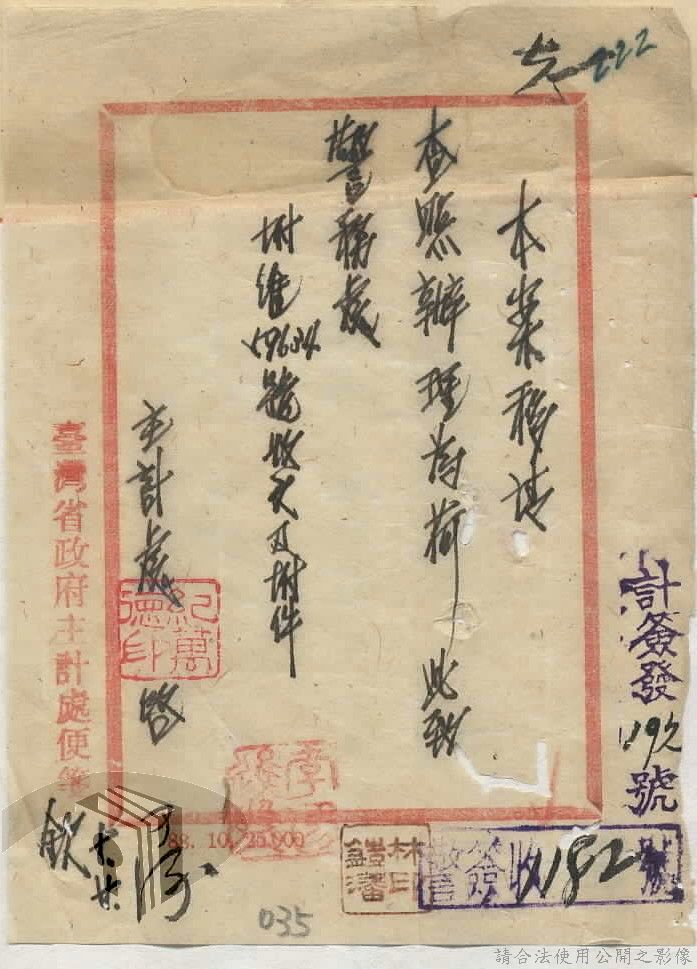 222
本案移請
查照辦理為荷 此致
警務處
附 號收文及附件
主計處 啓
紀萬德印
臺灣省政府主計處便箋
計簽發 號
林 印
警簽收 1182 號
38. 10. 25.000
035
請合法使用公開之影像